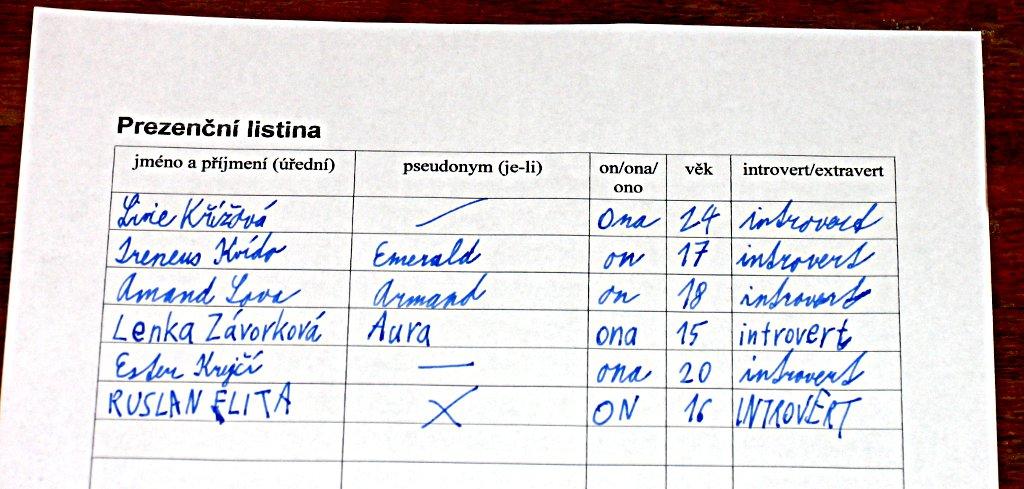 Prezenční listina
jméno a příjmení (úřední) pseudonym (je-li) on/ona/ono věk introvert/extravert
Livie Křížová — ona 24 introvert
Ireneus Kvído Emerald on 17 introvert
Amand Lova Armand on 18 introvert
Lenka Závorková Aura ona 15 introvert
Ester Krejčí — ona 20 introvert
RUSLAN ELITA X ON 16 INTROVERT